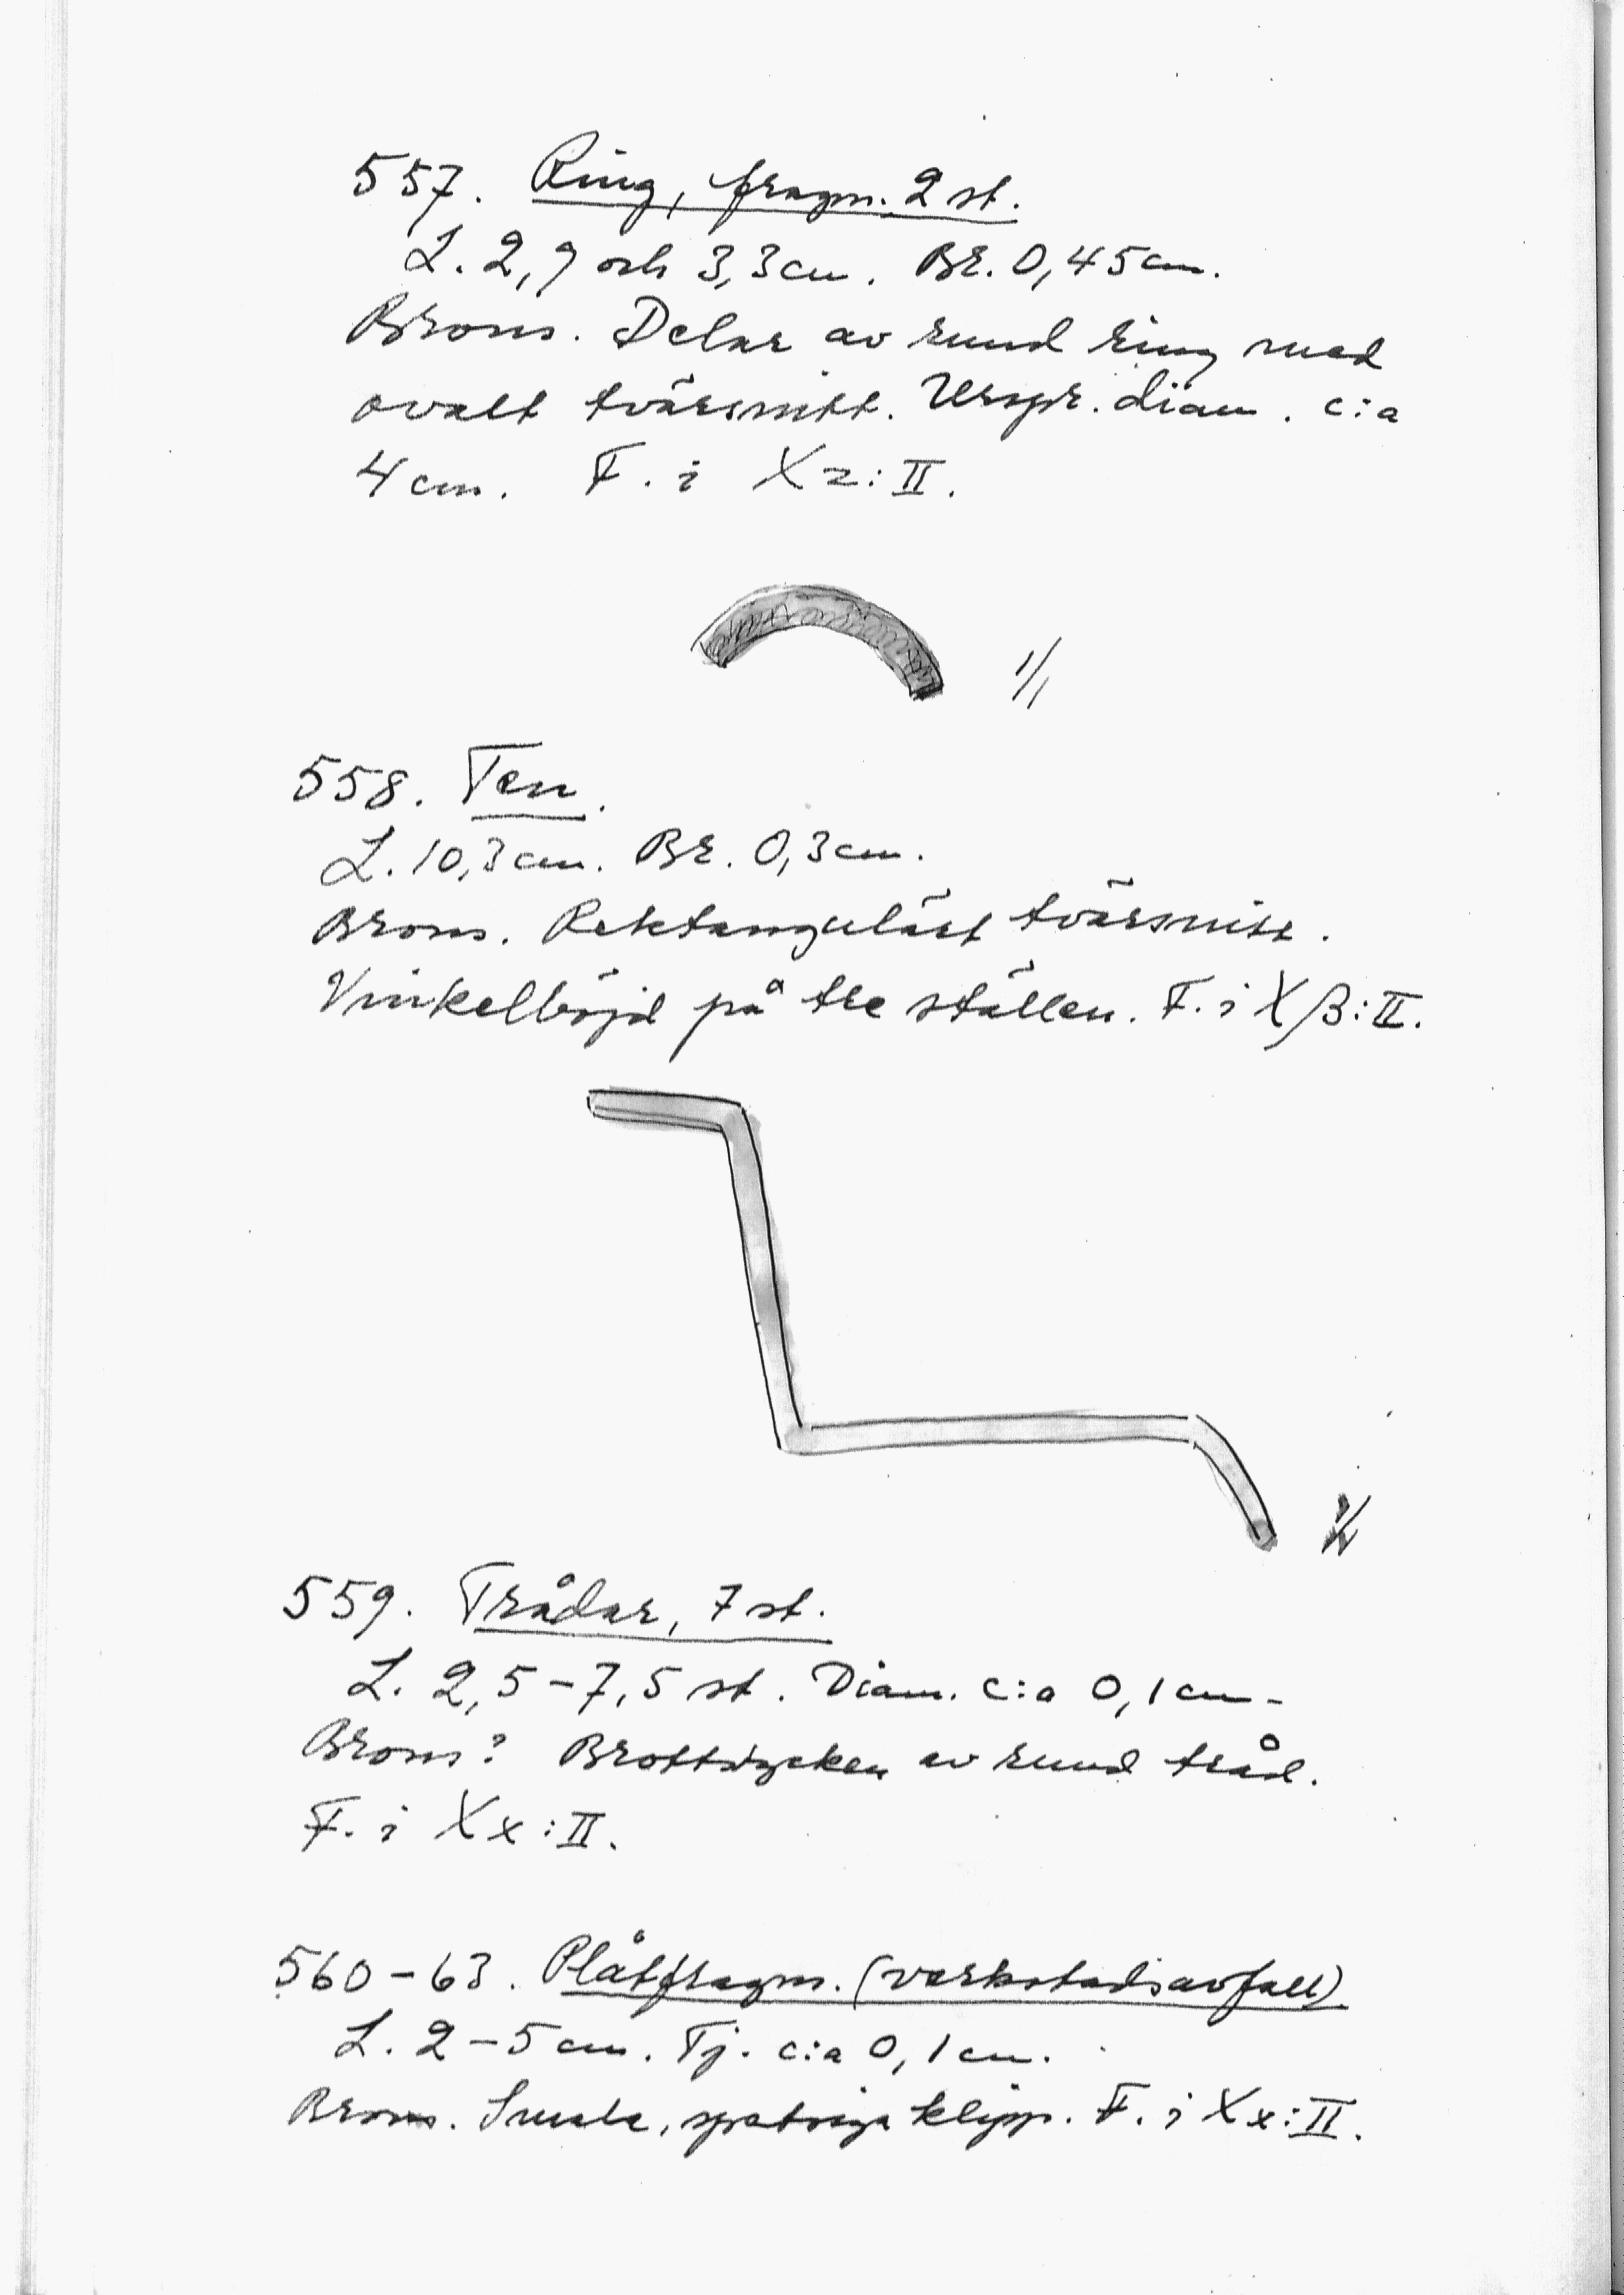 557. Ring, fragm. 2 st.
L. 2,9 och 3,3 cm. Br. 0,45 cm.
Brons. Delar av rund ring med
ovalt tvärsnitt. Urspr. diam. c:a
4 cm. F. i Xz:II.
1/1
558. Ten.
L. 10,3 cm. Br. 0,3 cm.
Brons. Rektangulärt tvärsnitt.
Vinkelböjd på tre ställen. F. i Xβ:II.
559. Trådar, 7 st.
L. 2,5-7,5 st. Diam. c:a 0,1 cm.
Brons? Brottstycken av rund tråd.
F. i Xx:II.
560-63. Plåtfragm. (verkstadsavfall).
L. 2-5 cm. Tj. c:a 0,1 cm.
Brons. Smala, spetsiga klipp. F. i Xx:II.